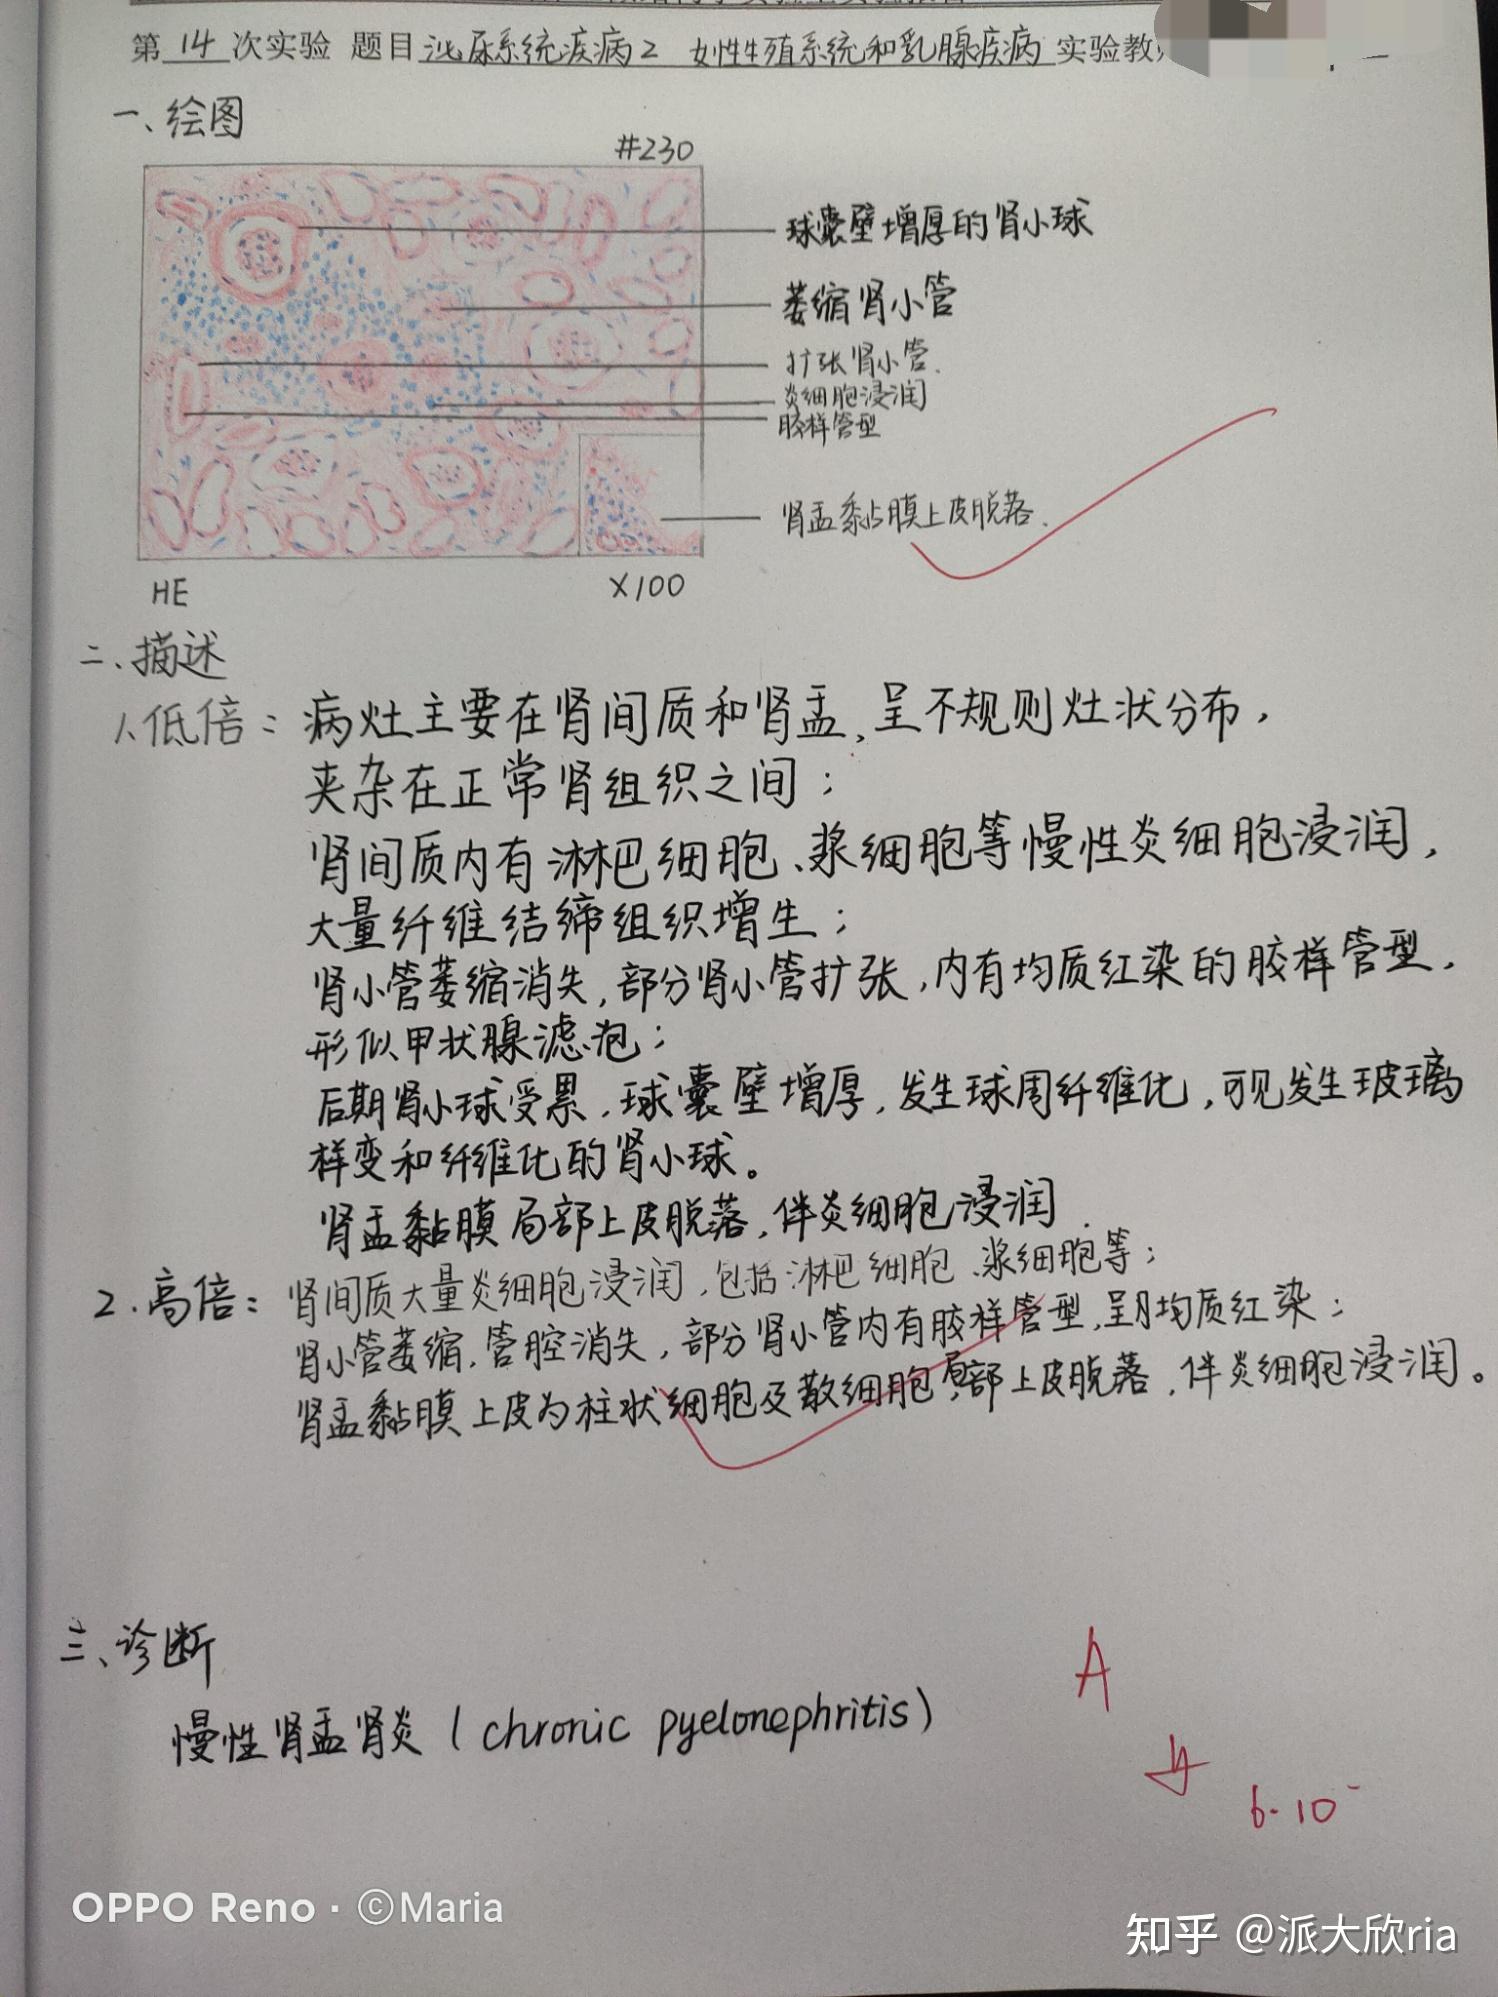 第 14 次实验 题目 泌尿系统疾病2 女性生殖系统和乳腺疾病 实验教
一、绘图
#230
球囊壁增厚的肾小球
萎缩肾小管
扩张肾小管.
炎细胞浸润
胶样管型
肾盂黏膜上皮脱落.
HE
X100
二、描述
1.低倍：病灶主要在肾间质和肾盂，呈不规则灶状分布，
夹杂在正常肾组织之间；
肾间质内有淋巴细胞、浆细胞等慢性炎细胞浸润，
大量纤维结缔组织增生；
肾小管萎缩消失，部分肾小管扩张，内有均质红染的胶样管型，
形似甲状腺滤泡；
后期肾小球受累，球囊壁增厚，发生球周纤维化，可见发生玻璃
样变和纤维化的肾小球。
肾盂黏膜局部上皮脱落，伴炎细胞浸润.
2.高倍：肾间质大量炎细胞浸润，包括淋巴细胞、浆细胞等；
肾小管萎缩，管腔消失，部分肾小管内有胶样管型，呈均质红染；
肾盂黏膜上皮为柱状细胞及散细胞，局部上皮脱落，伴炎细胞浸润。
三、诊断
慢性肾盂肾炎（chronic pyelonephritis）
A
6.10
OPPO Reno · ©Maria
知乎 @派大欣ria